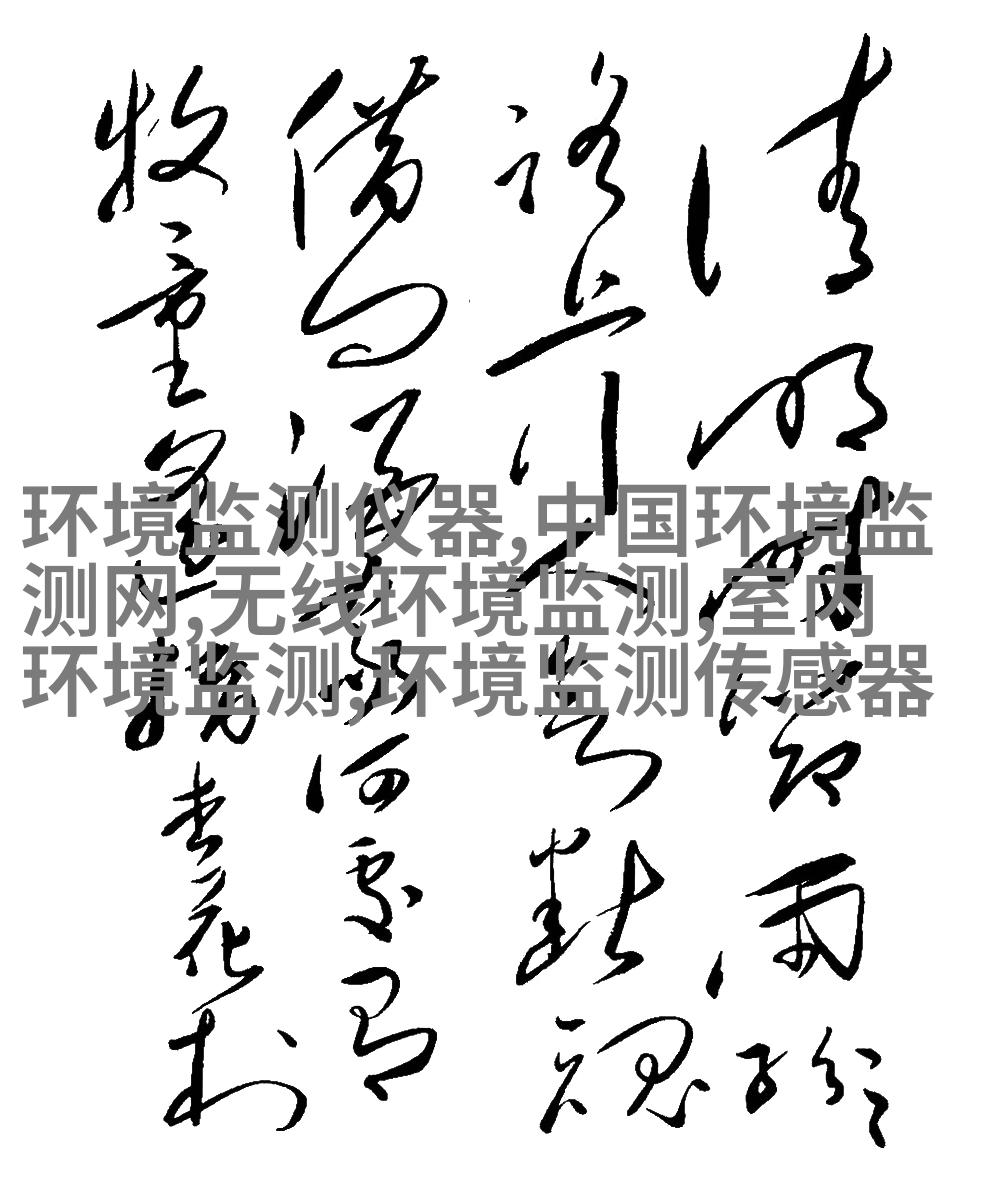 清明時節雨紛々
路上行人欲斷魂
借问酒家何處有
牧童遥指杏花村
环境监测仪器,中国环境监
测网,无线环境监测,室内
环境监测,环境监测传感器